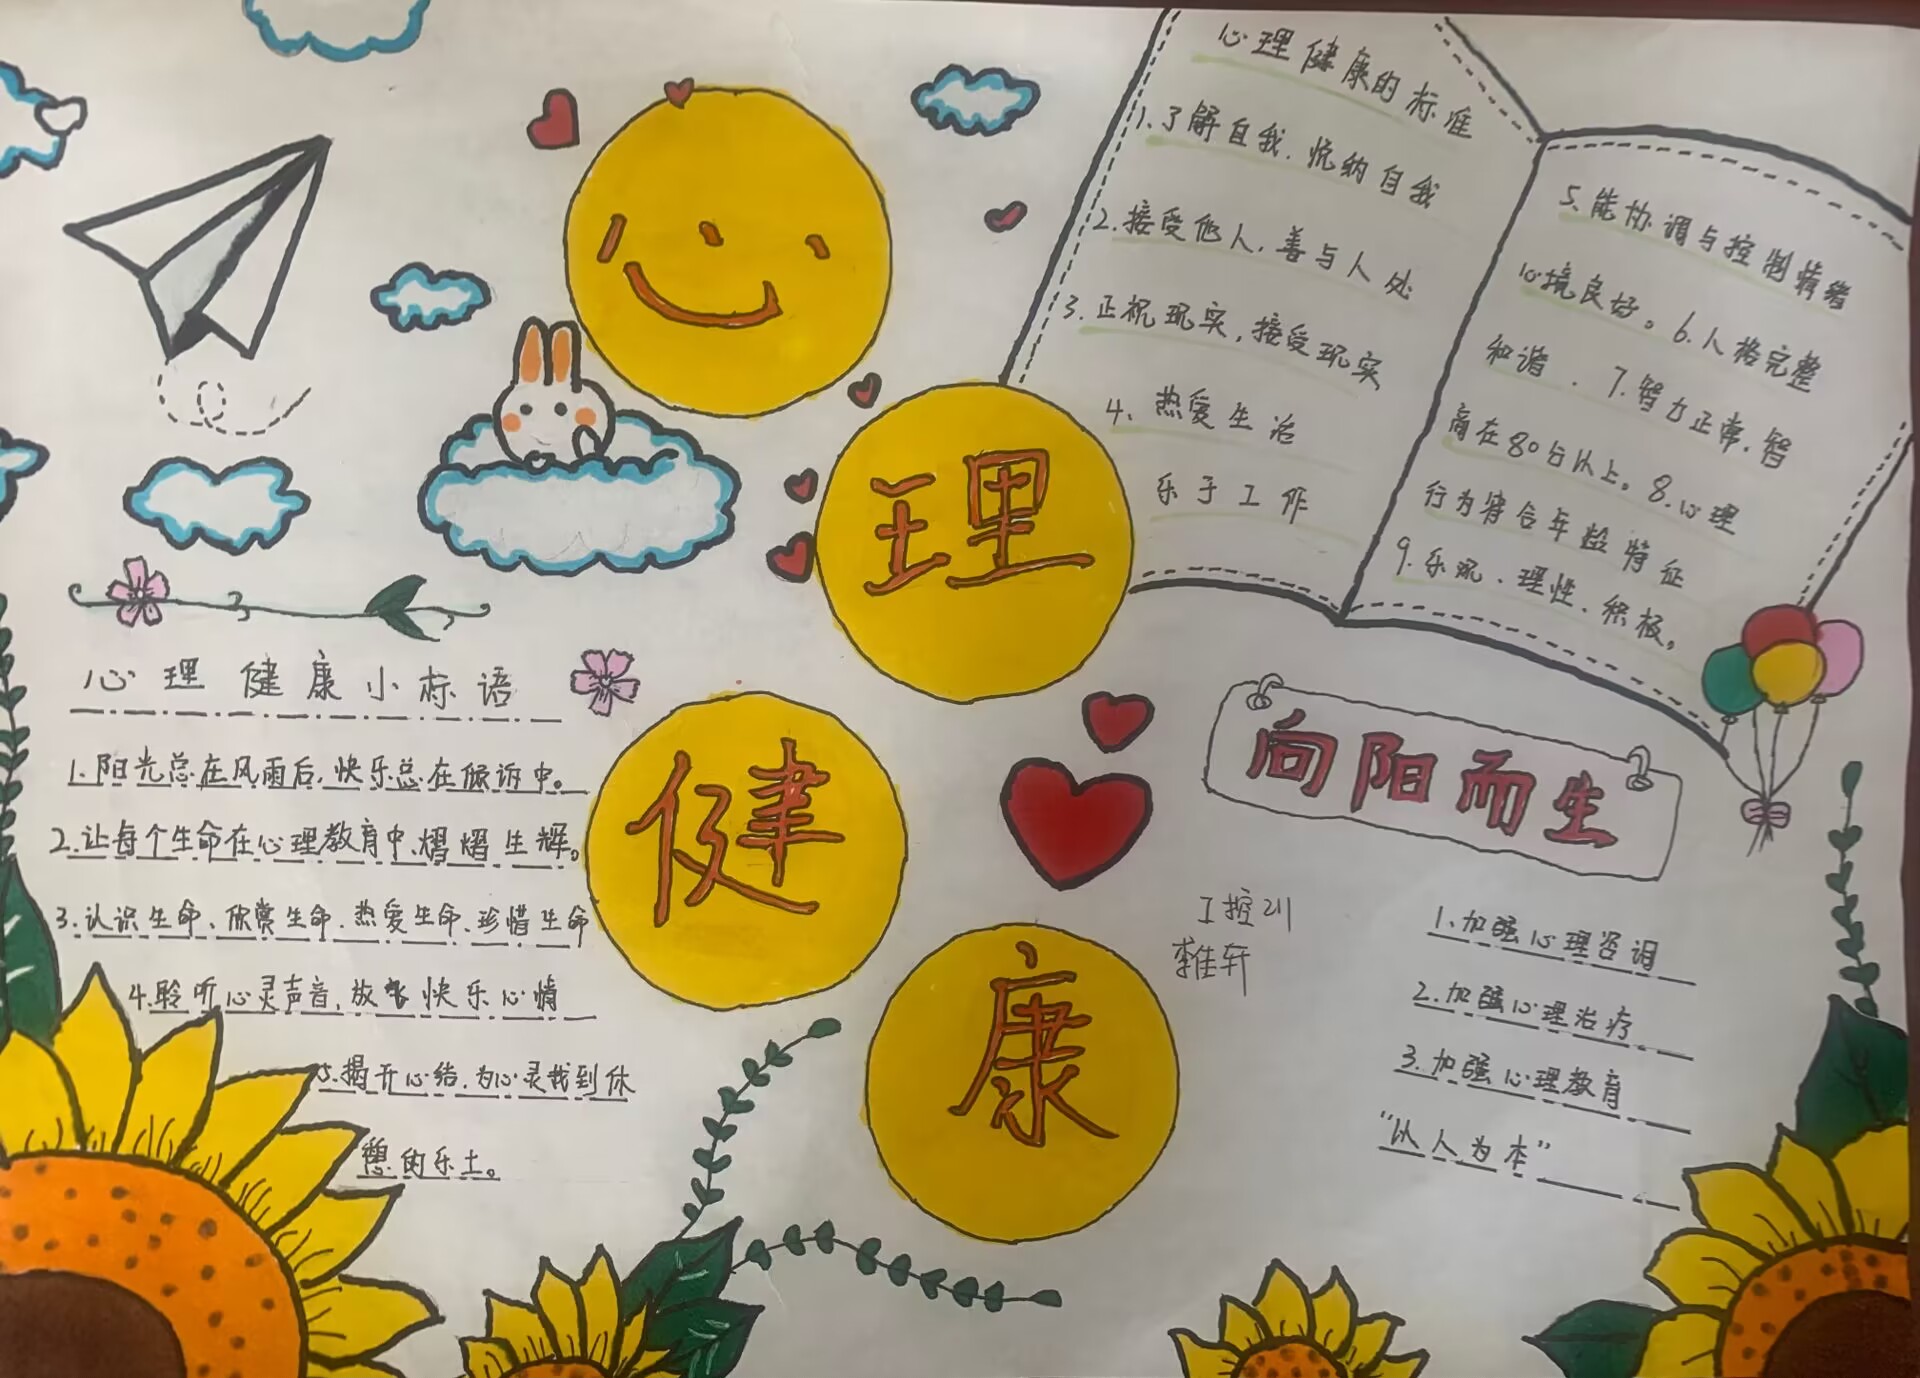 心理健康的标准
1.了解自我.悦纳自我
2.接受他人.善与人处
3.正视现实,接受现实
4.热爱生活
乐于工作
5.能协调与控制情绪
心境良好。6.人格完整
和谐.7.智力正常.智
商在80分以上。8.心理
行为符合年龄特征
9.乐观、理性、积极。
理
健
康
心理健康小标语
1.阳光总在风雨后,快乐总在倾诉中。
2.让每个生命在心理教育中、熠熠生辉。
3.认识生命、欣赏生命.热爱生命、珍惜生命
4.聆听心灵声音,放飞快乐心情
5.揭开心结.为心灵找到休
憩的乐土。
向阳而生
工控211
李佳轩
1.加强心理咨调
2.加强心理治疗
3.加强心理教育
“以人为本”